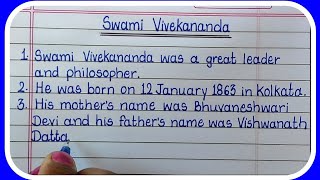 Swami Vivekananda
1. Swami Vivekananda was a great leader
and philosopher.
2. He was born on 12 January 1863 in Kolkata.
3. His mother's name was Bhuvaneshwari
Devi and his father's name was Vishwanath
Datta